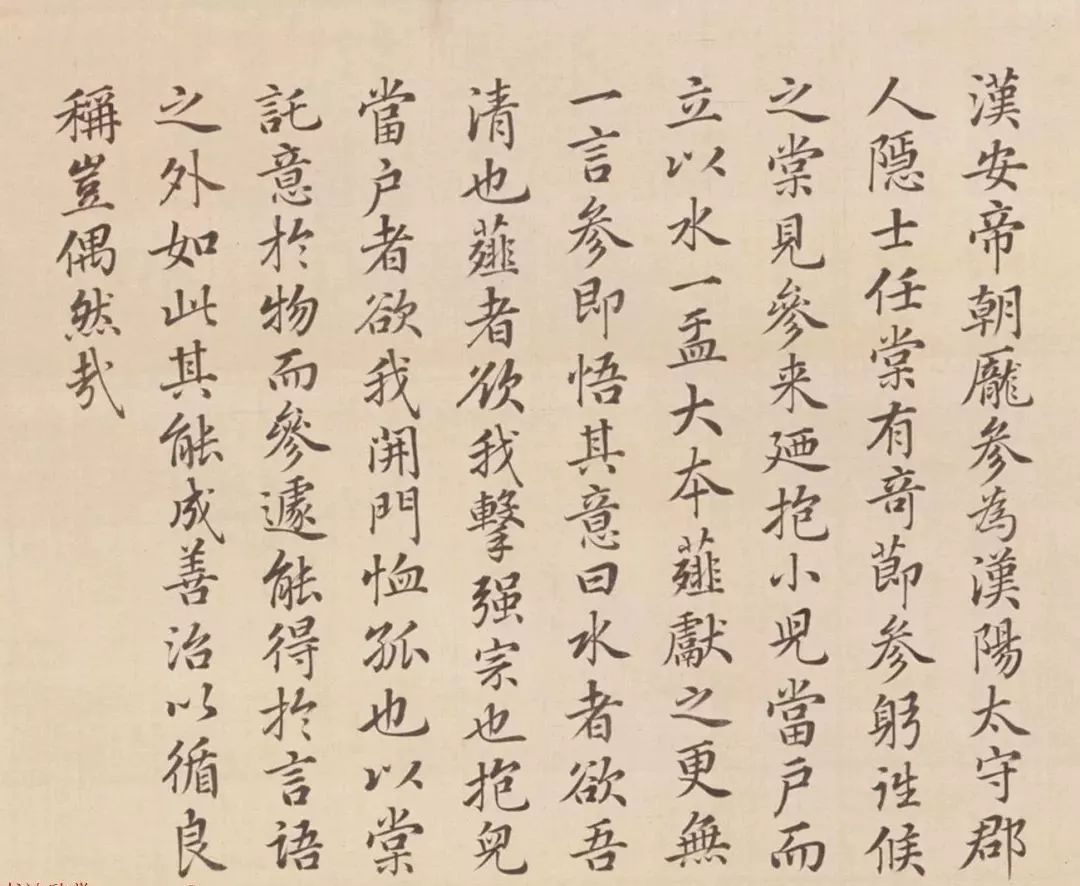 漢安帝朝龐参為漢陽太守郡
人隱士任棠有竒莭参躬詣候
之棠見參来廼抱小児當戸而
立以水一盂大本薤獻之更無
一言参即悟其意曰水者欲吾
清也薤者欲我擊强宗也抱兒
當户者欲我開門恤孤也以棠
託意於物而參遽能得於言語
之外如此其能成善治以循良
稱豈偶然哉